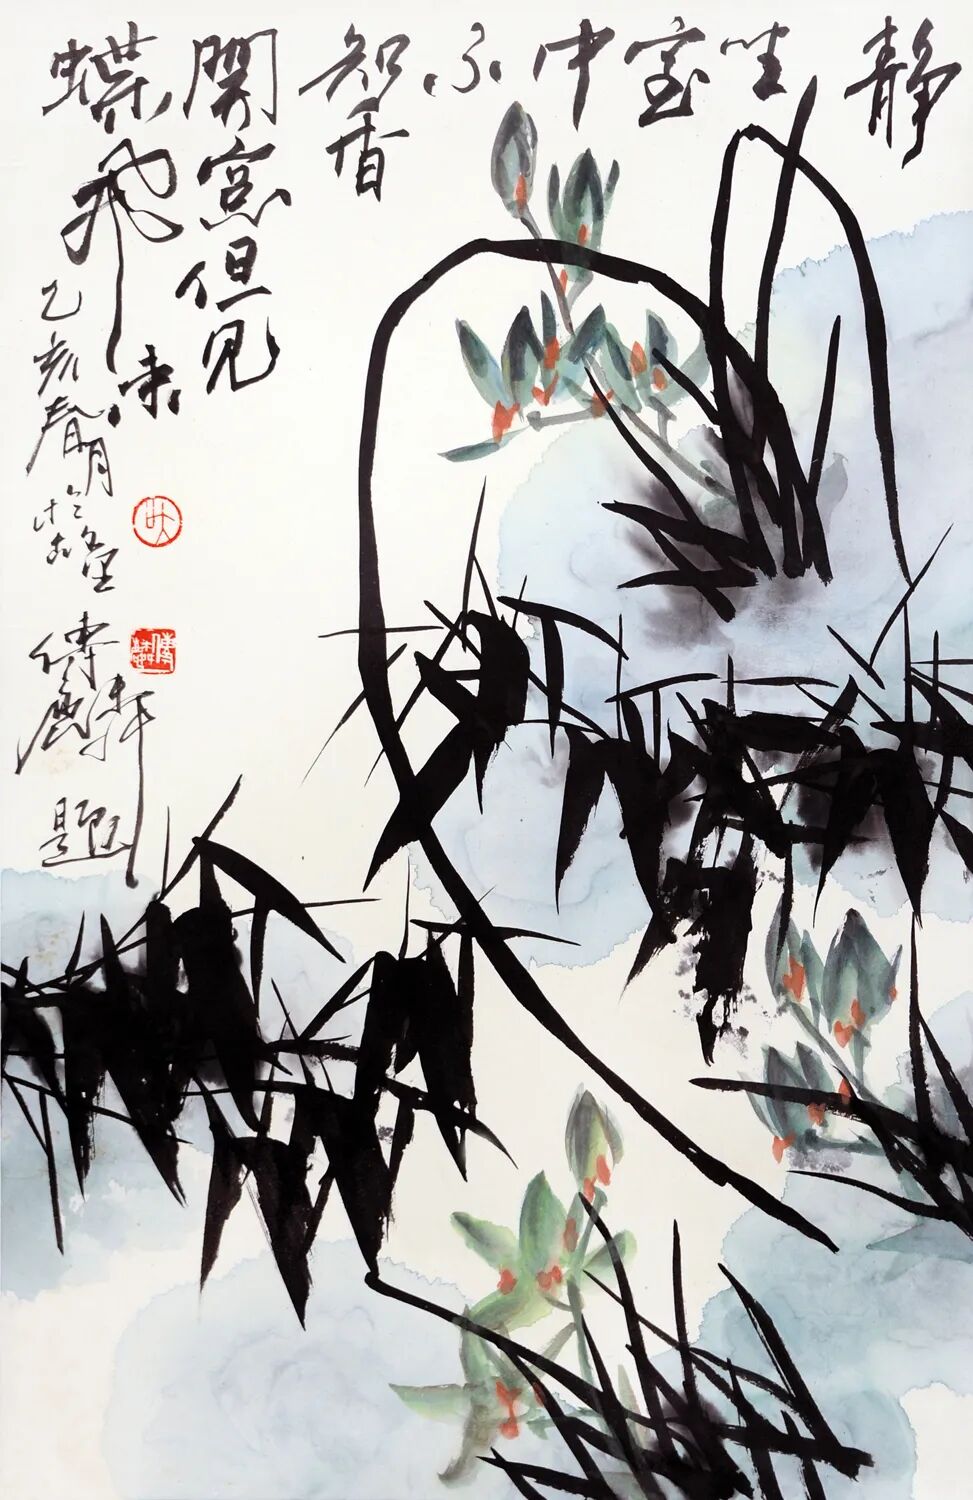 静坐室中不知香
開窓但見
蝶飛来
乙亥春月於
傅
軒題